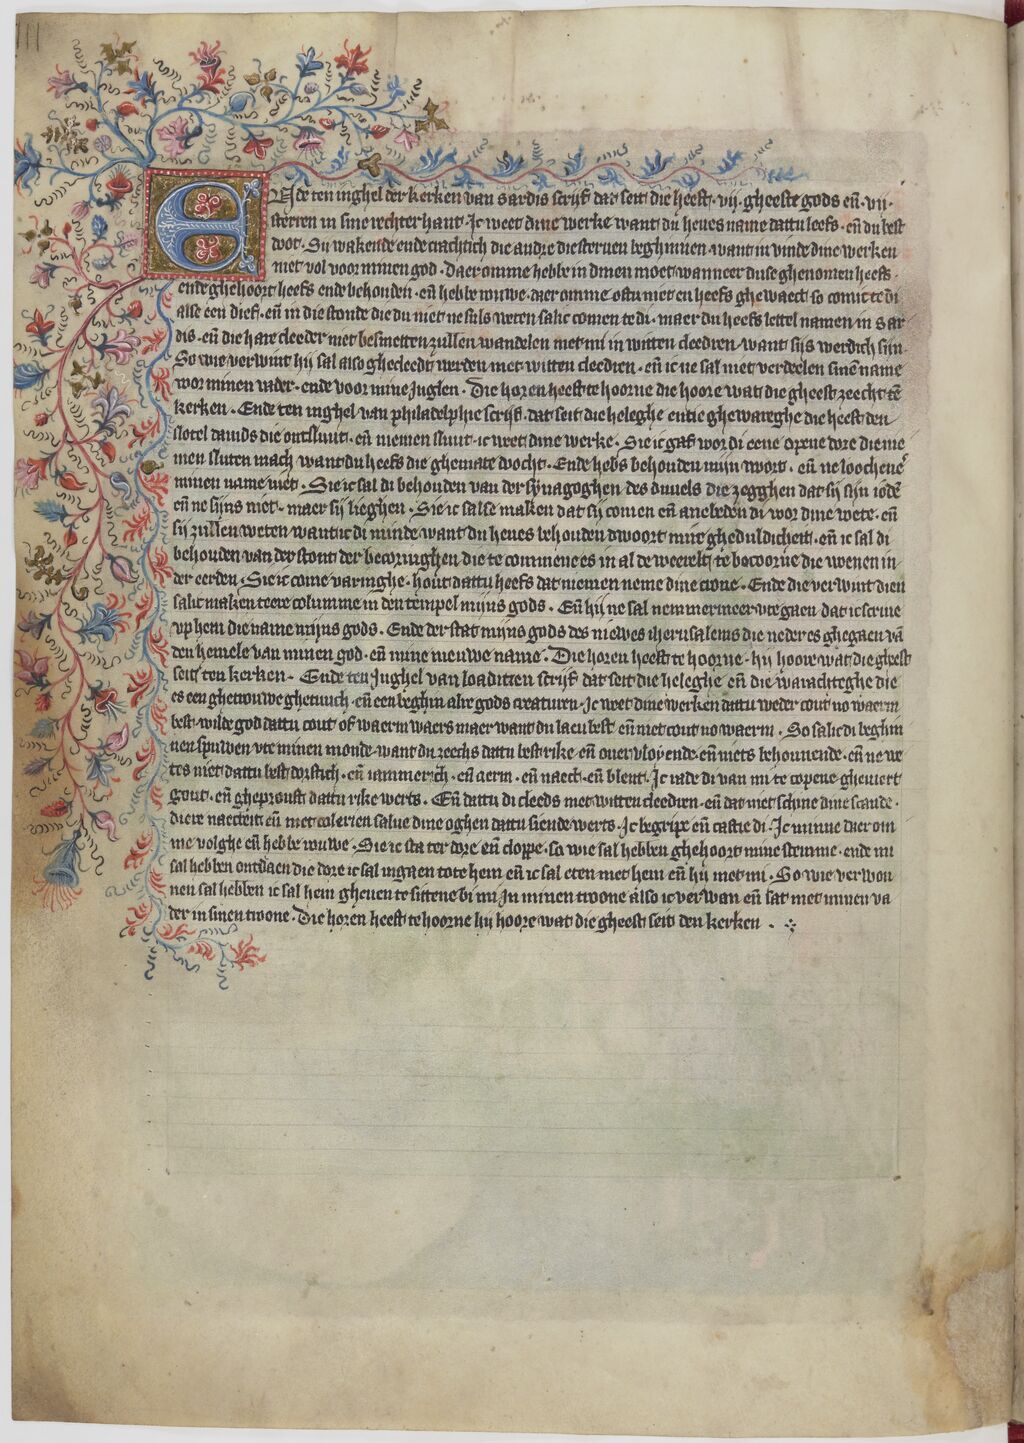 ENde ten inghel der kerken van sardis scrijf dat seit die heeft · vij · gheeste gods en̄ · vij ·
sterren in sine rechter hant · Ic weet dine werke want du heues name dattu leefs · en̄ du best
doot · Sij wakende ende crachtich die andre die steruen beghinnen · want in vinde dine werken
niet vol voor minen god · daer omme hebbe in dinen moet wanneer du ise ghenomen heefs ·
ende ghehoort heefs ende behouden · en̄ hebbe rouwe · daer omme ofstu niet en heefs ghewaect so comic te di
alse een dief · en̄ in die stonde die du niet ne sals weten salic comen te di · maer du heefs lettel namen in sar
dis · en̄ die hare cleeder niet besmetten zullen wandelen met mi in witten cleedren · want sijs werdich sijn ·
So wie verwint hij sal also ghecleedt werden met witten cleedren · en̄ ic ne sal niet verdeelen sinē name
voor minen vader · ende voor mine Jnglen · Die horen heeft te hoorne die hoore wat die gheest zeecht tē
kerken · Ende ten inghel van philadelphie scrijf · dat seit die heleghe entie ghewareghe die heeft den
slotel dauids die ontsluut · en̄ niemen sluut · ic weet dine werke · Sie ic gaf voor di eene opene dore die nie
men sluten mach want du heefs die ghemate docht · Ende hebs behouden mijn woort · en̄ ne loochene
minen name niet · Sie ic sal di behouden van der synagoghen des duuels die zegghen dat sij sijn iodē
en̄ ne sijns niet · maer sij lieghen · Sie ic salse maken dat sij comen en̄ anebeden di voor dine voete · en̄
sij zullen weten want ic di minde want du heues behouden dwoort mire gheduldicheit · en̄ ic sal di
behouden van der stont der becoringhen die te commene es in al de weerelt te becoorne die wenen in
der eerden · Sie ic come varinghe · hout dattu heefs dat niemen neme dine crone · Ende die verwint dien
salic maken teere columme in den tempel mijns gods · En̄ hij ne sal nemmermeer vte gaen dat ic scriue
vp hem die name mijns gods · Ende der stat mijns gods des niewes iherusalems die neder es ghegaen vā
den hemele van minen god · en̄ mine nieuwe name · Die horen heeft te hoorne · hij hoore wat die gheest
seit ten kerken · Ende ten Jnghel van loaditien scrijf dat seit die heleghe en̄ die warachteghe die
es een ghetrouwe ghetuuch · en̄ een beghin alre gods creaturen · Ic weet dine werken dattu weder cout no waerm
best · wilde god dattu cout of waerm waers maer want du laeu best en̄ niet cout no waerm · So salic di beghin
nen spuwen vte minen monde · want du zeechs dattu best rike en̄ ouervloyende · en̄ niets behouuende · en̄ ne we
tes niet dattu best dorstich · en̄ iammerich · en̄ aerm · en̄ naect · en̄ blent · Ic rade di van mi te copene gheuiert
gout · en̄ gheproeuft dattu rike werts · En̄ dattu di cleeds met witten cleedren · en̄ dat niet schine dine scande ·
diere naecteit en̄ met colerien salue dine oghen dattu siende werts · Ic begripe en̄ castie di · Ic minne daer om
me volghe en̄ hebbe rouwe · Sie ic sta ter dore en̄ cloppe · so wie sal hebben ghehoort mine stemme · ende mi
sal hebben ontdaen die dore ic sal ingaen tote hem en̄ ic sal eten met hem en̄ hij met mi · So wie verwon
nen sal hebben ic sal hem gheuen te sittene bi mi Jn minen troone also ic verwan en̄ sat met minen va
der in sinen troone · Die horen heeft te hoorne hij hoore wat die gheest seit den kerken ·